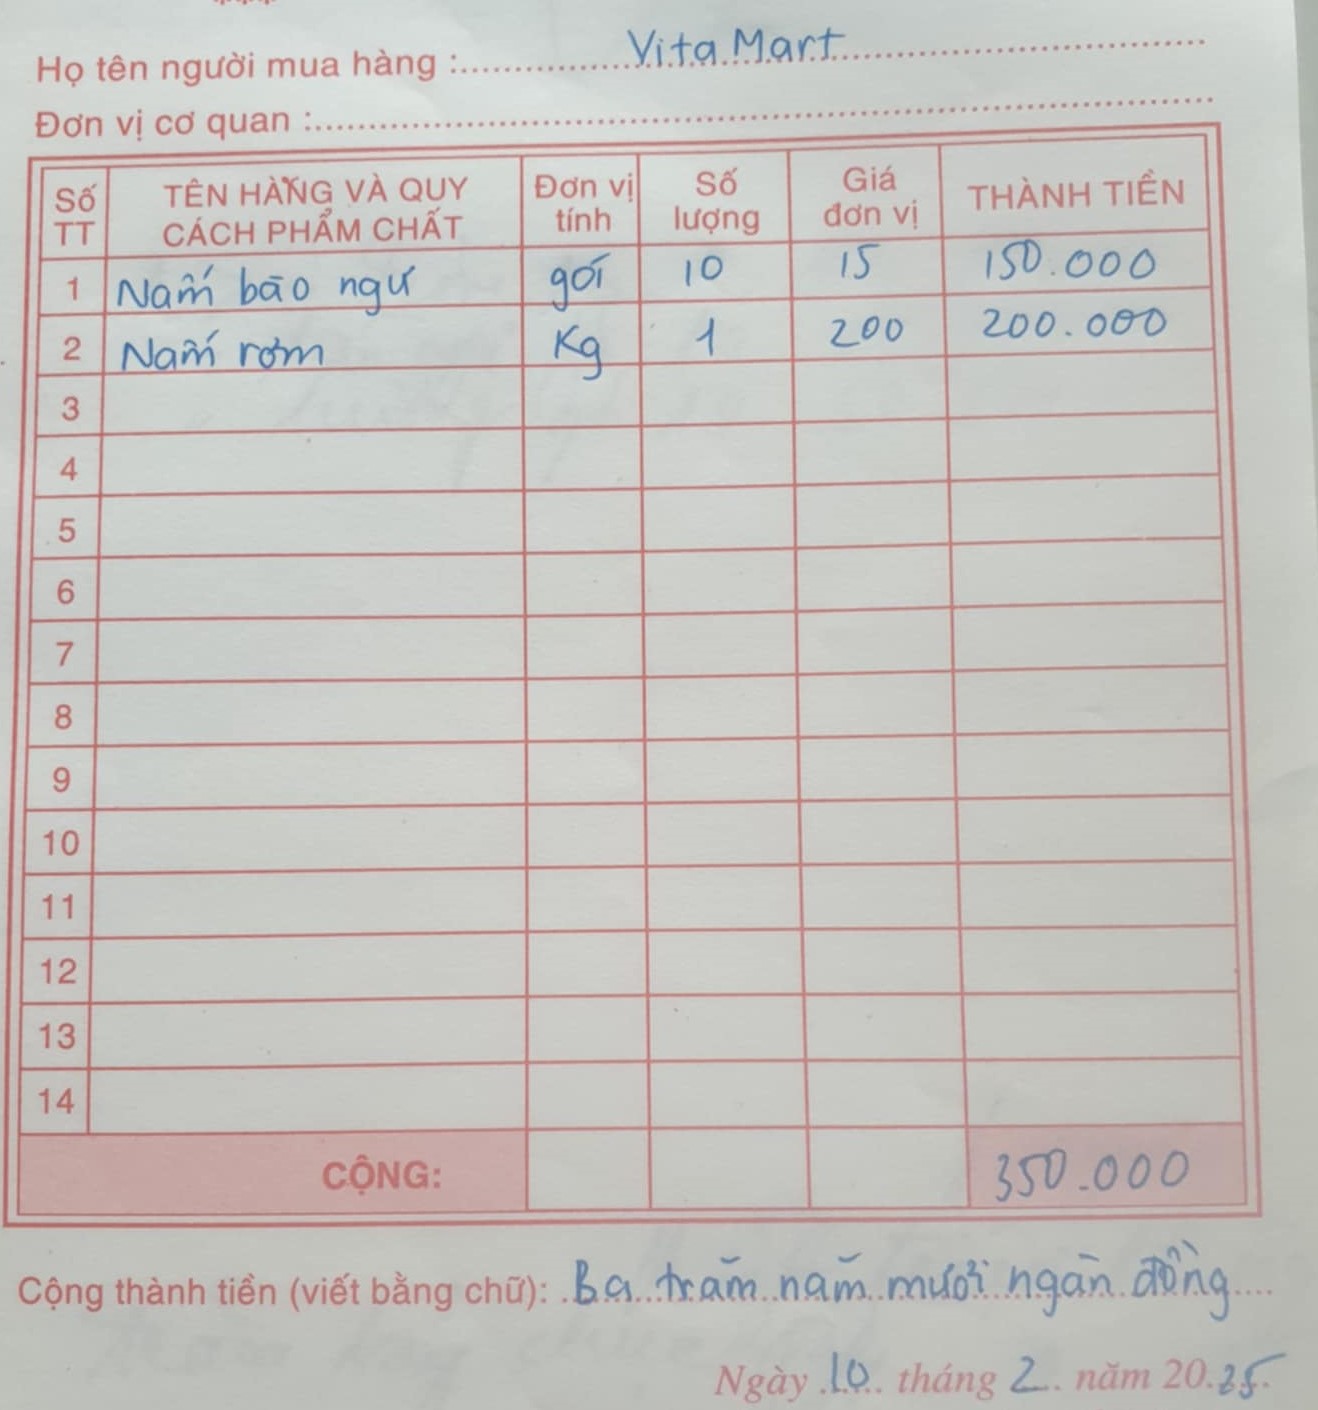 Họ tên người mua hàng : Vita Mart
Đơn vị cơ quan :
Số TT TÊN HÀNG VÀ QUY CÁCH PHẨM CHẤT Đơn vị tính Số lượng Giá đơn vị THÀNH TIỀN
1 Nấm bào ngư gói 10 15 150.000
2 Nấm rơm Kg 1 200 200.000
3
4
5
6
7
8
9
10
11
12
13
14
CỘNG: 350.000
Cộng thành tiền (viết bằng chữ): Ba trăm năm mươi ngàn đồng
Ngày 10 tháng 2 năm 2025